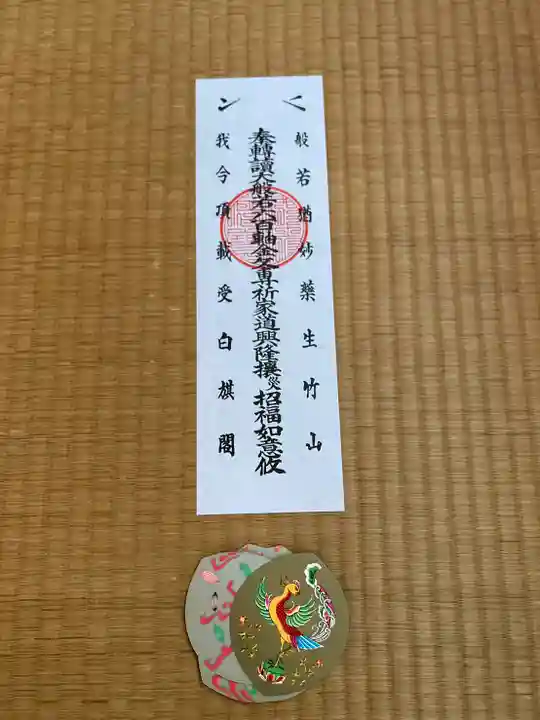 般若猶妙藥生竹山
奉轉讀大般若六百軸金文専祈家道興隆攘災招福如意攸
我今頂戴受白旗閣